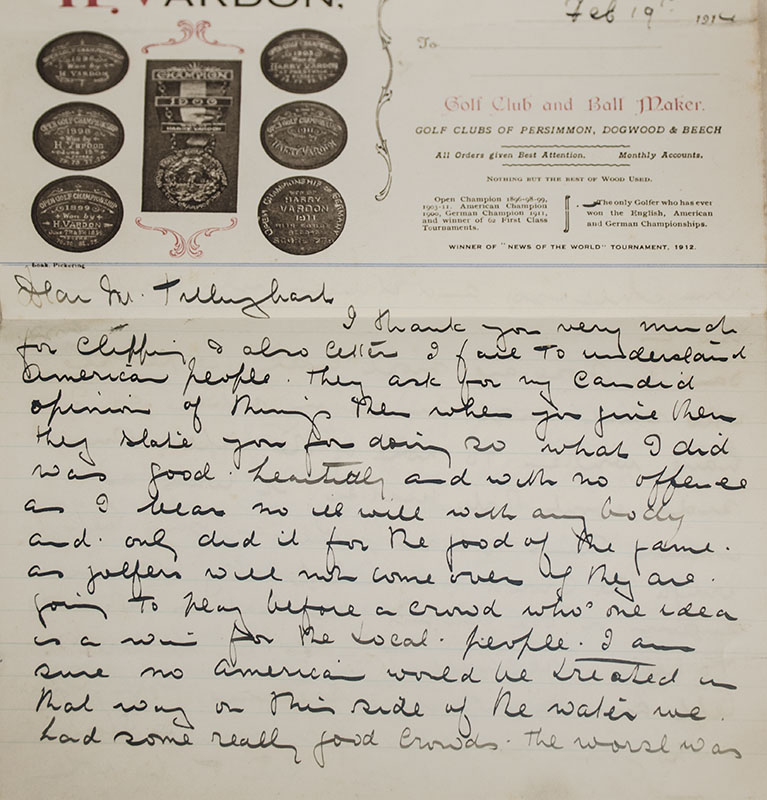 H. VARDON.
Feb 19th 1914
To
Golf Club and Ball Maker.
GOLF CLUBS OF PERSIMMON, DOGWOOD & BEECH
All Orders given Best Attention. Monthly Accounts.
NOTHING BUT THE BEST OF WOOD USED.
Open Champion 1896-98-99,
1903-11. American Champion
1900, German Champion 1911,
and winner of 62 First Class
Tournaments.
The only Golfer who has ever
won the English, American
and German Championships.
WINNER OF "NEWS OF THE WORLD" TOURNAMENT, 1912.
H. VARDON
OPEN GOLF CHAMPIONSHIP
1898
Won by
H. VARDON
OPEN GOLF CHAMPIONSHIP
1899
Won by
H. VARDON
CHAMPION
1900
HARRY VARDON
1903
Won by
HARRY VARDON
1911
HARRY VARDON
HARRY
VARDON
1911
Pickering
Dear Mr. Tillinghast
I thank you very much
for clipping & also letter I fail to understand
American people. They ask for my candid
opinion of things then when you give them
they slate you for doing so what I did
was good. and with no offence
as I bear no ill will with any body
and. only did it for the good of the game.
as golfers will not come over if they are.
going to play before a crowd who's one idea
is a win for the Local. people. I am
sure no American would be treated in
that way on this side of the water we.
had some really good crowds. the worse was